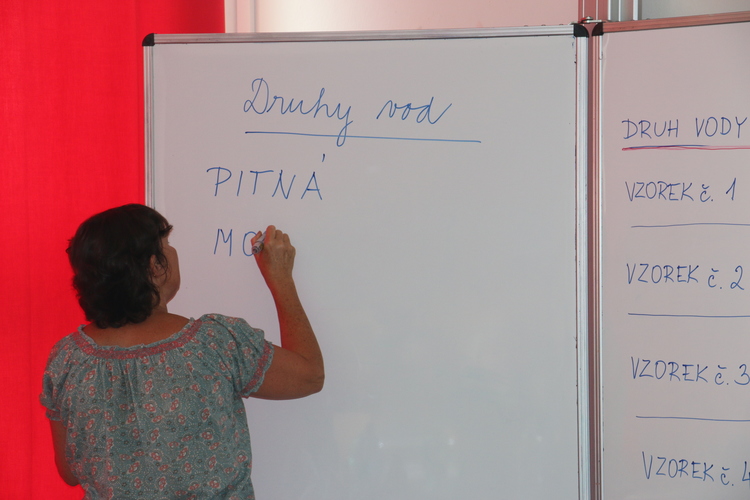 Druhy vod
PITNÁ
MO
DRUH VODY
VZOREK č. 1
VZOREK č. 2
VZOREK č. 3
VZOREK č. 4